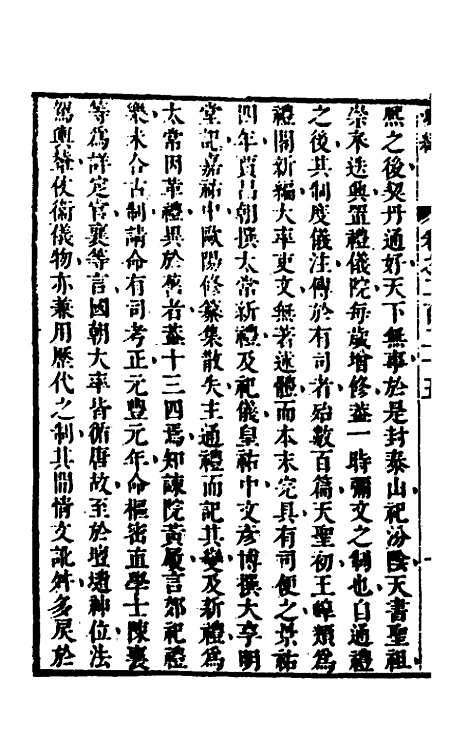 熈之後契丹通好天下無事於是封泰山祀汾隂天書聖祖
崇奉迭興置禮儀院毎歲增修葢一時彌文之制也自通禮
之後其制度儀注傳於有司者殆數百篇天聖初王皡類爲
禮閣新編大率吏文無著述體而本末完具有司便之景祐
四年賈昌朝撰太常新禮及祀儀皇祐中文彥博撰大享明
堂記嘉祐中歐陽修纂集散失主通禮而記其變及新禮爲
太常因革禮異於舊者葢十三四焉知諫院黃履言郊祀禮
樂未合古制請命有司考正元豐元年命樞密直學士陳襄
等爲詳定官襄等言國朝大率皆循唐故至於壇壝神位法
駕輿輦仗衛儀物亦兼用歷代之制其間情文訛舛多戾於